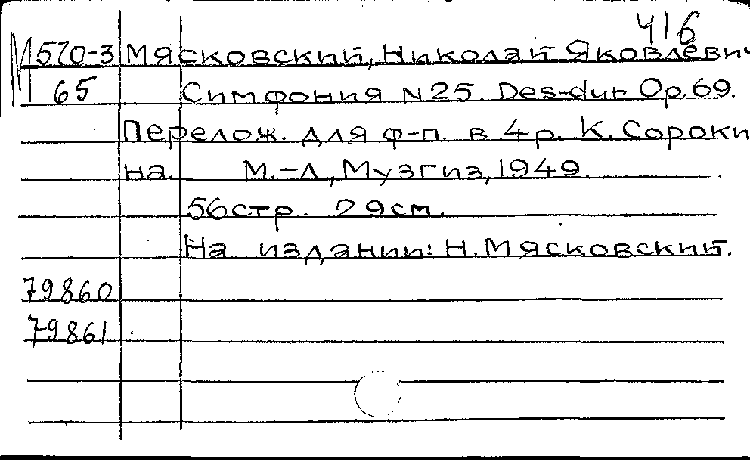 416
М 570-3 Мясковский, Николай Яковлевич
Т 65 Симфония N25. Des-dur. Op.69.
Перелож. для ф-п. в 4 р. К. Сороки
на. М.-Л., Музгиз, 1949.
56 стр. 29 см.
На издании: Н. Мясковский.
79860
79861